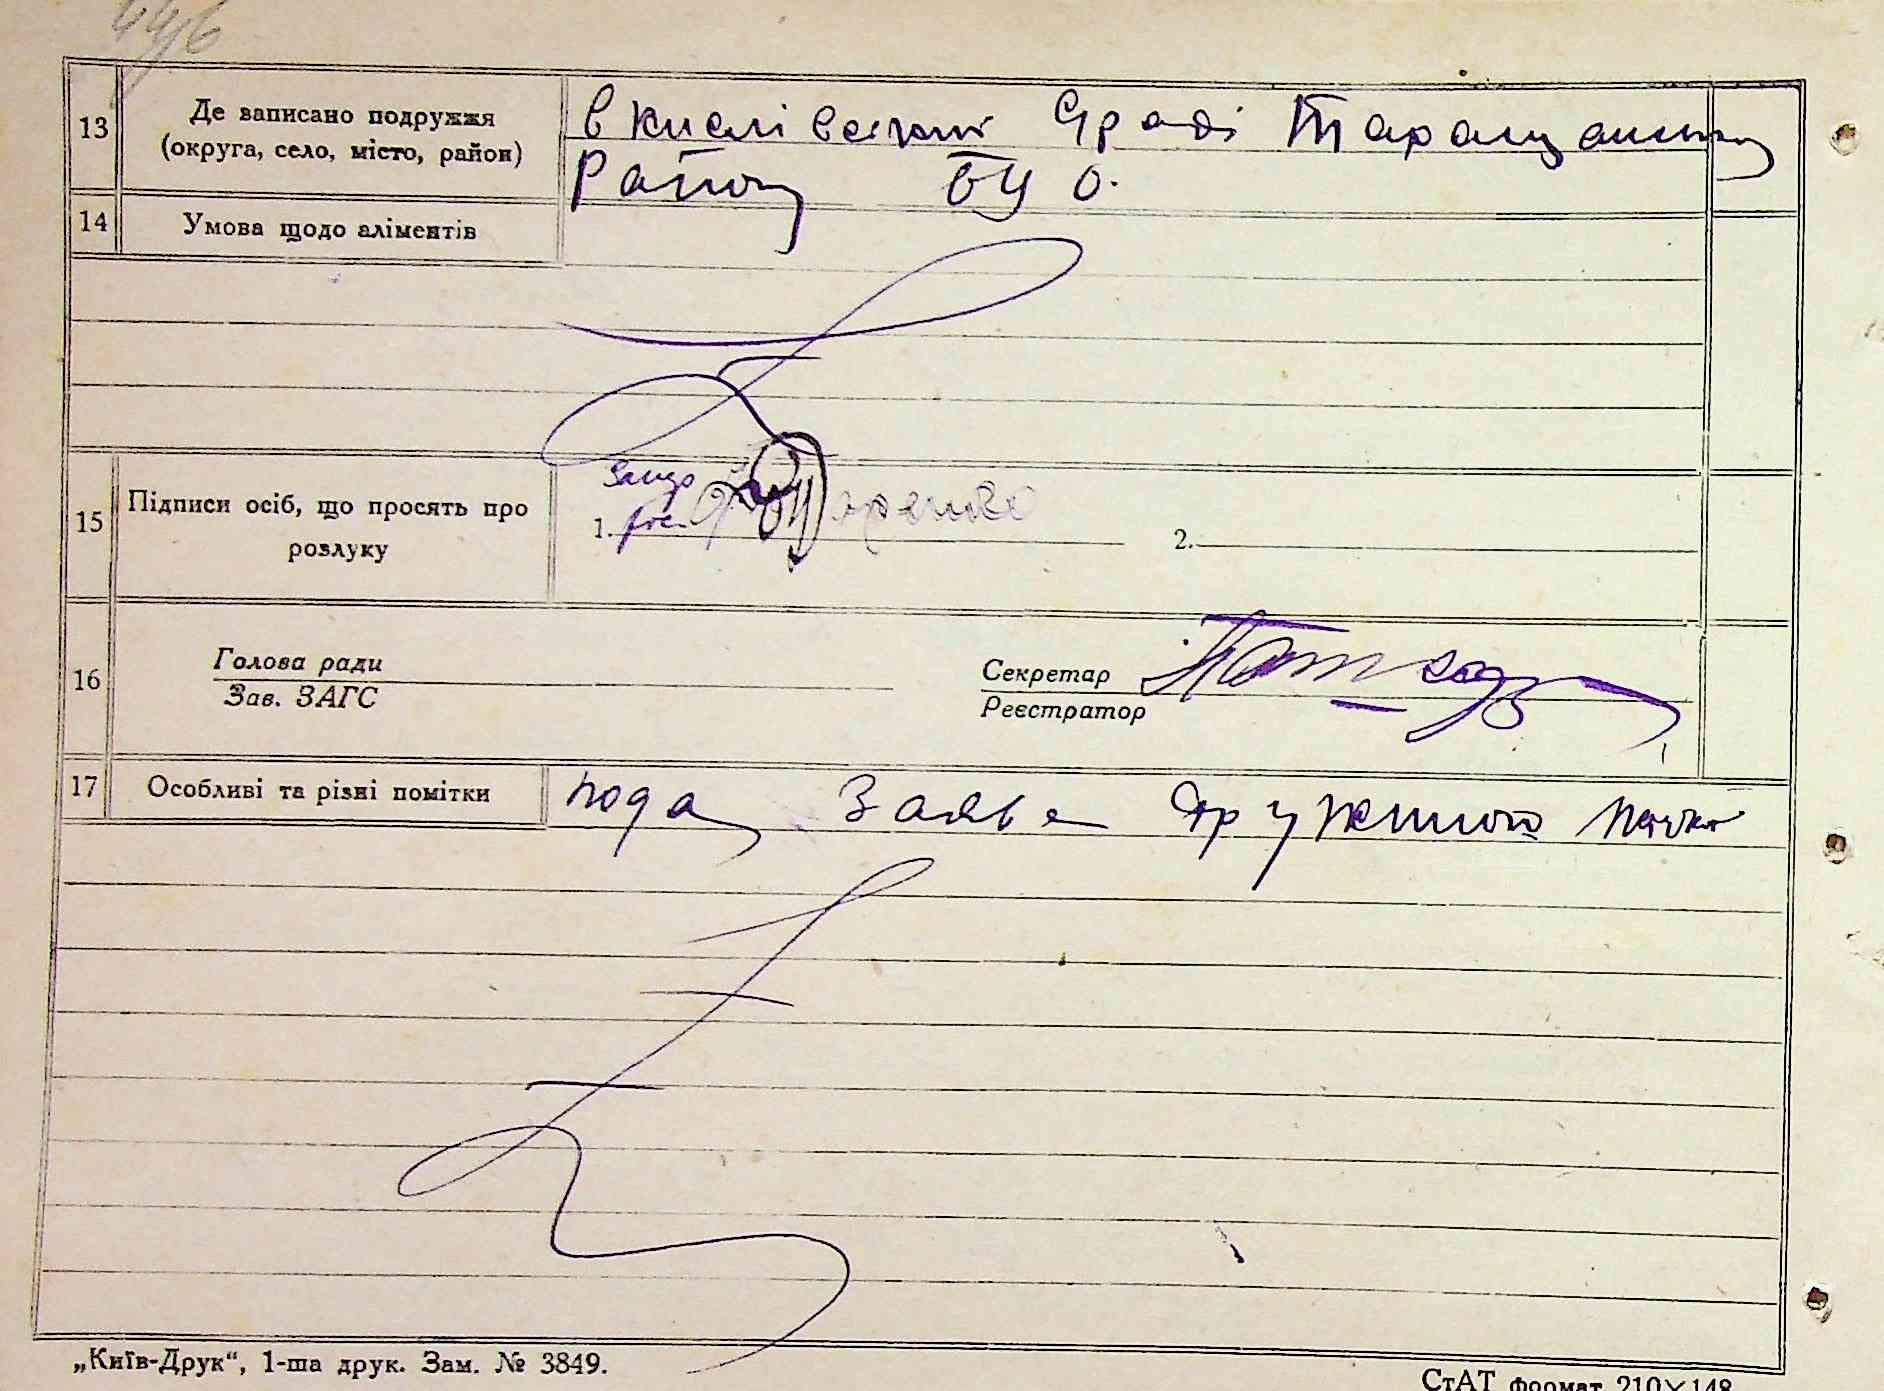 446
13 Де записано подружжя
(округа, село, місто, район)
в кислівській с/раді Таращанськ
Району БЦ О.
14 Умова щодо аліментів
15 Підписи осіб, що просять про
розлуку
1.
2.
16 Голова ради
Зав. ЗАГС
Секретар
Реєстратор
17 Особливі та різні помітки
пода заяв
„Київ-Друк“, 1-ша друк. Зам. № 3849.
СтАТ формат 210×148